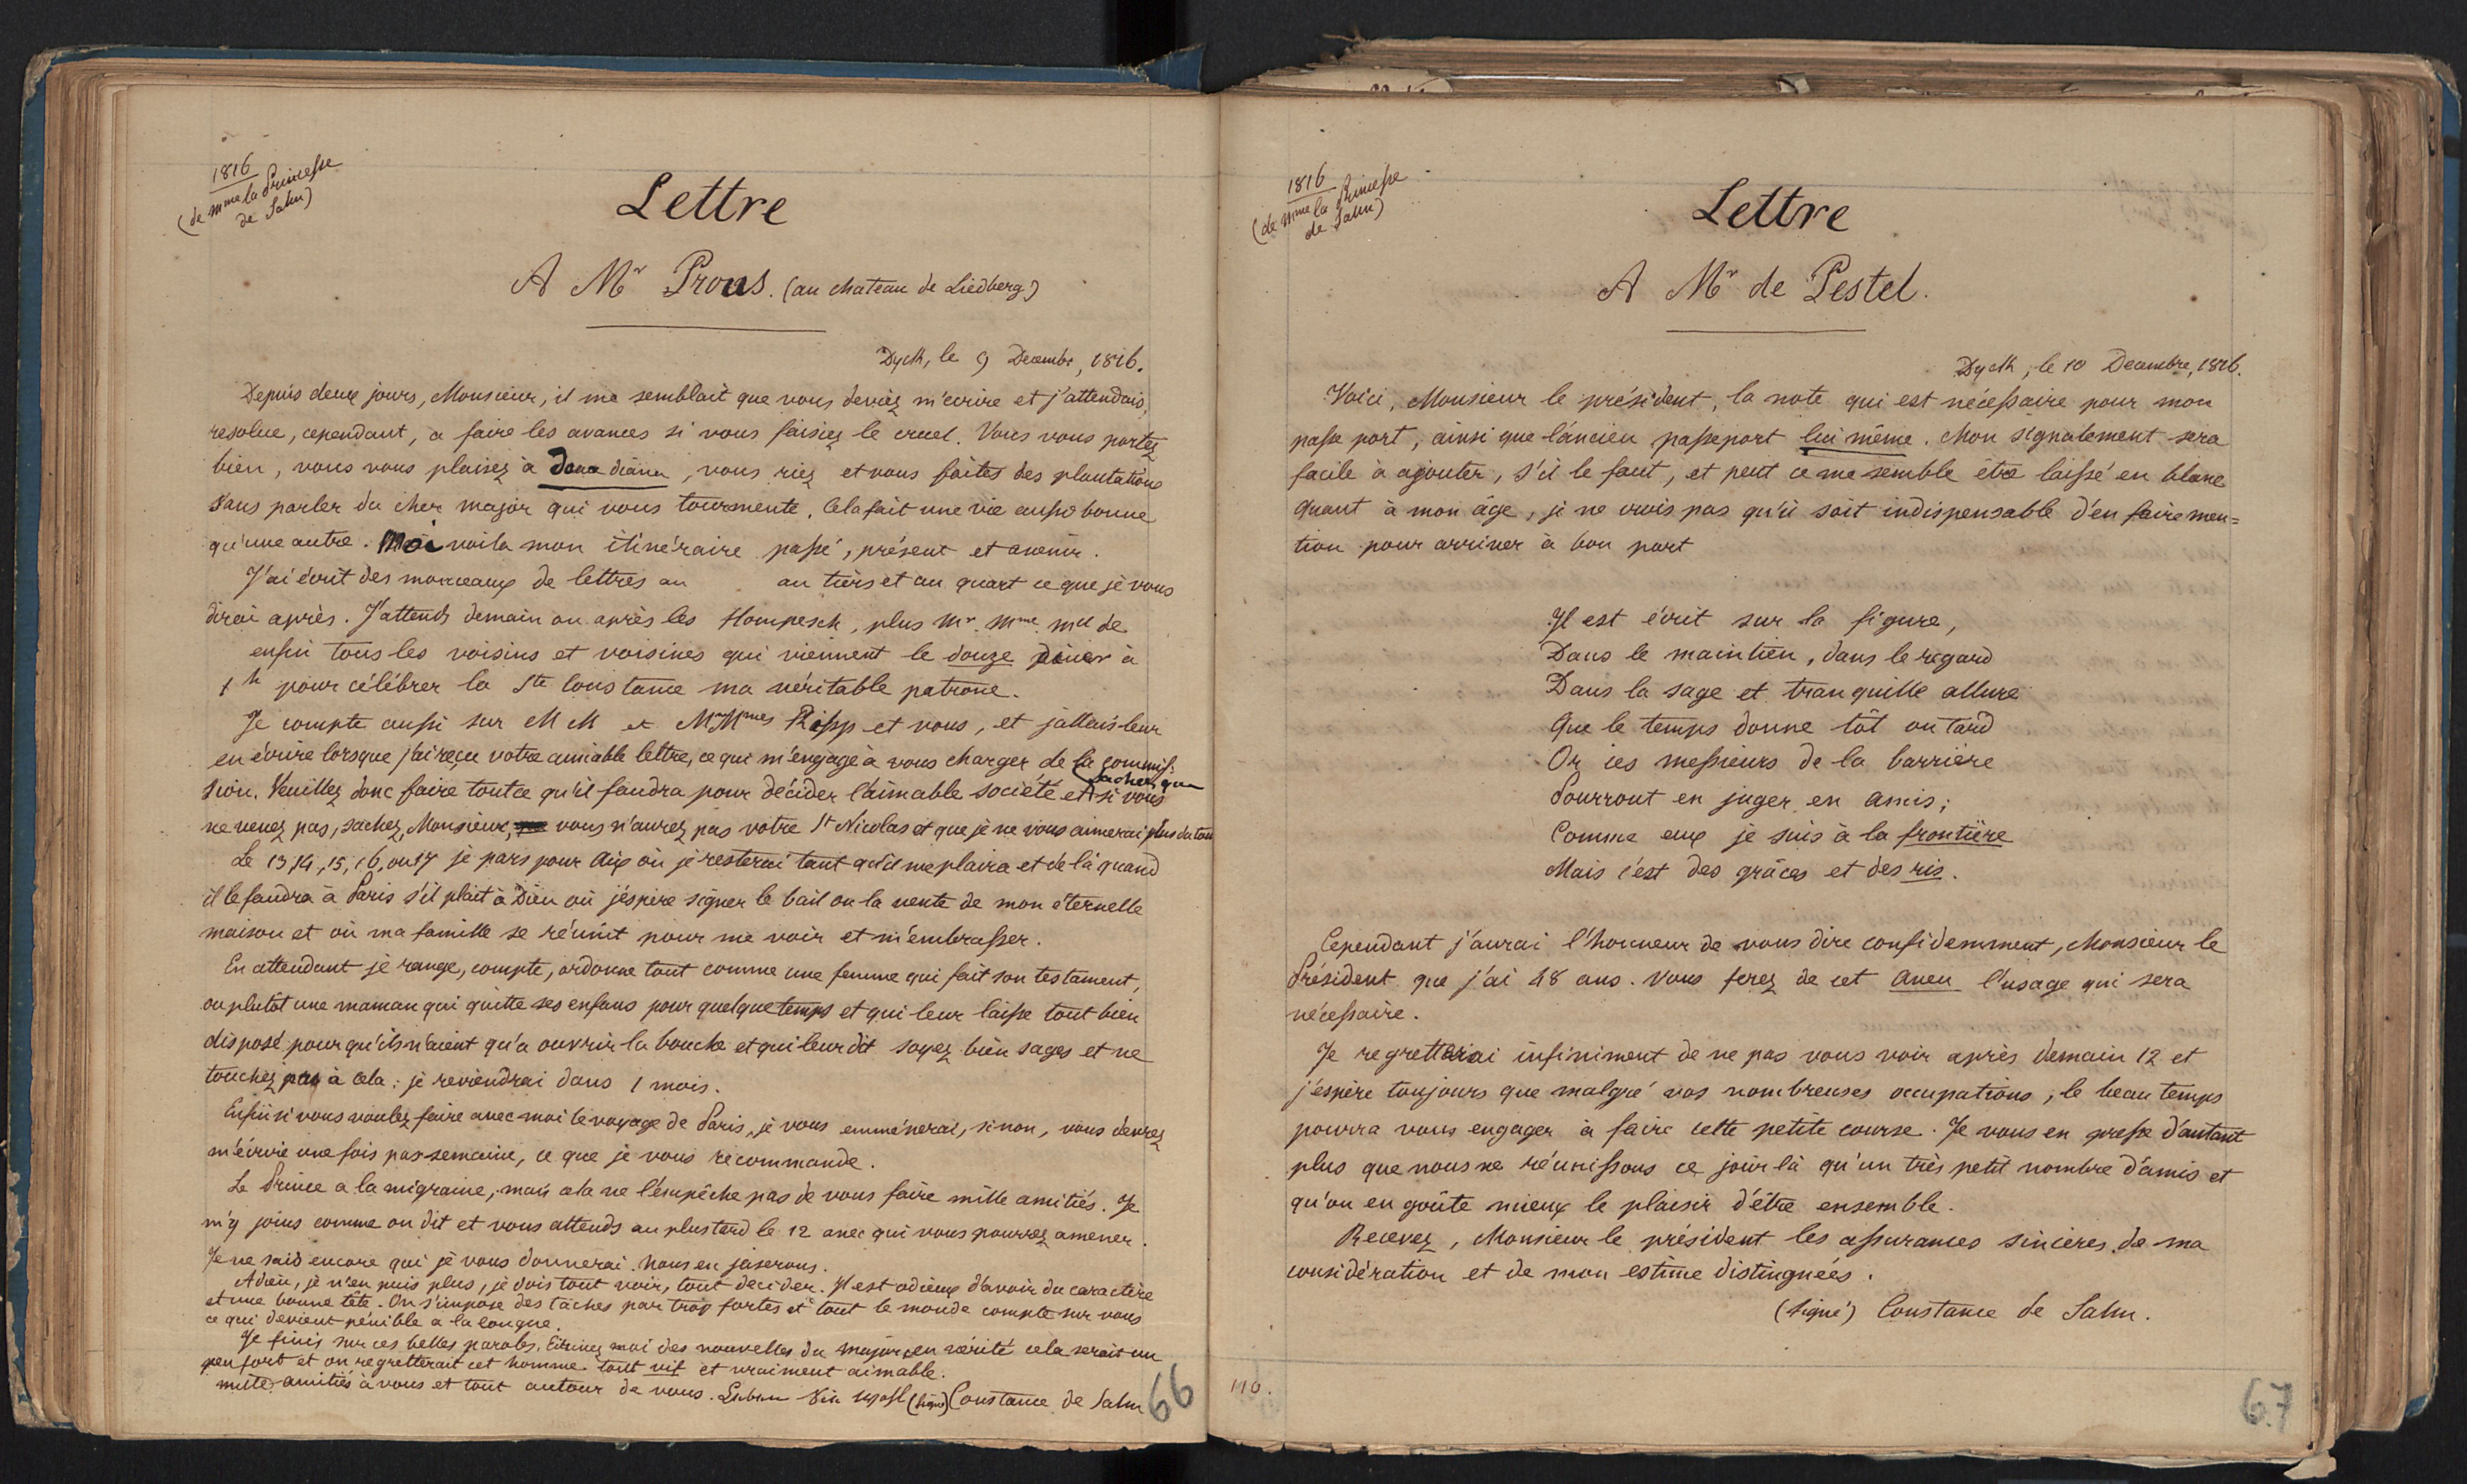 1816
(de Mme la Princesse
de Salm)
Lettre
A Mr Prous. (au chateau de Liedberg)
Dyck, le 9 Decembr, 1816.
Depuis deux jours, Monsieur, il me semblait que vous deviez m'ecrire et j'attendais,
resolue, cependant, a faire les avances si vous faisiez le cruel. Vous vous portez
bien, vous vous plaisez à dona diana, vous riez et vous faites des plantations
sans parler du cher major qui vous tourmente. Cela fait une vie aussi bonne
qu'une autre. Moi voila mon itinéraire passé, présent et avenir.
J'ai écrit des morceaux de lettres au au tiers et au quart ce que je vous
dirai après. J'attends demain ou après les Hompesch, plus Mr. Mme. Mll de
enfin tous les voisins et voisines qui viennent le douze diner à
1h pour célébrer la Ste Constance ma véritable patrone.
Je compte aussi sur M M et Mmes Ripp et vous, et j'allais leur
en écrire lorsque j'ai reçu votre aimable lettre, ce qui m'engage à vous charger de la commis-
sion. Veuillez donc faire tout ce qu'il faudra pour décider l'aimable société et sachez que si vous
ne venez pas, sachez, Monsieur, vous n'aurez pas votre St Nicolas et que je ne vous aimerai plus du tout
Le 13, 14, 15, 16, ou 17 je pars pour Aix où je resterai tant qu'il me plaira et de là quand
il le faudra à Paris s'il plait à Dieu où j'éspère signer le bail ou la vente de mon éternelle
maison et où ma famille se réunit pour me voir et m'embrasser.
En attendant je range, compte, ordonne tout comme une femme qui fait son testament,
ou plutôt une maman qui quitte ses enfans pour quelque temps et qui leur laisse tout bien
disposé pour qu'ils n'aient qu'a ouvrir la bouche et qui leur dit soyez bien sages et ne
touchez pas à cela: je reviendrai dans 1 mois.
Enfin si vous voulez faire avec moi le voyage de Paris, je vous emmènerai, sinon, vous devrez
m'écrire une fois par semaine, ce que je vous recommande.
Le Prince a la migraine, mais cela ne l'empêche pas de vous faire mille amitiés. Je
m'y joins comme on dit et vous attends au plus tard le 12 avec qui vous pourrez amener.
Je ne sais encore qui je vous donnerai. Nous en jaserons.
Adieu, je n'en puis plus, je dois tout voir, tout decider. Il est odieux d'avoir du caractère
et une bonne tête. On s'impose des tâches par trop fortes et tout le monde compte sur vous
ce qui devient pénible a la longue.
Je finis sur ces belles paroles. Ecrivez moi des nouvelles du major, en vérité cela serait un
peu fort et on regretterait cet homme tout vif et vraiment aimable.
mille amitiés à vous et tout autour de vous. (signé) Constance de Salm
66
1816
(de Mme la Princesse
de Salm)
Lettre
A Mr de Pestel.
Dyck, le 10 Decembre, 1816.
Voici, Monsieur le président, la note qui est nécessaire pour mon
passe port, ainsi que l'ancien passeport lui même. Mon signalement sera
facile à ajouter, s'il le faut, et peut ce me semble être laissé en blanc
quant à mon âge, je ne crois pas qu'il soit indispensable d'en faire men=
tion pour arriver à bon port
Il est écrit sur la figure,
Dans le maintien, dans le regard
Dans la sage et tranquille allure
Que le temps donne tôt ou tard
Or ces messieurs de la barrière
Pourront en juger en amis;
Comme eux je suis à la frontière
Mais c'est des grâces et des ris.
Cependant j'aurai l'honneur de vous dire confidemment, Monsieur le
Président que j'ai 48 ans. Vous ferez de cet aveu l'usage qui sera
nécessaire.
Je regretterai infiniment de ne pas vous voir après demain 12 et
j'espère toujours que malgré vos nombreuses occupations, le beau temps
pourra vous engager à faire cette petite course. Je vous en presse d'autant
plus que nous ne réunissons ce jour là qu'un très petit nombre d'amis et
qu'on en goûte mieux le plaisir d'être ensemble.
Recevez, Monsieur le président les assurances sincères de ma
considération et de mon estime distinguées.
(signé) Constance de Salm.
116.
67